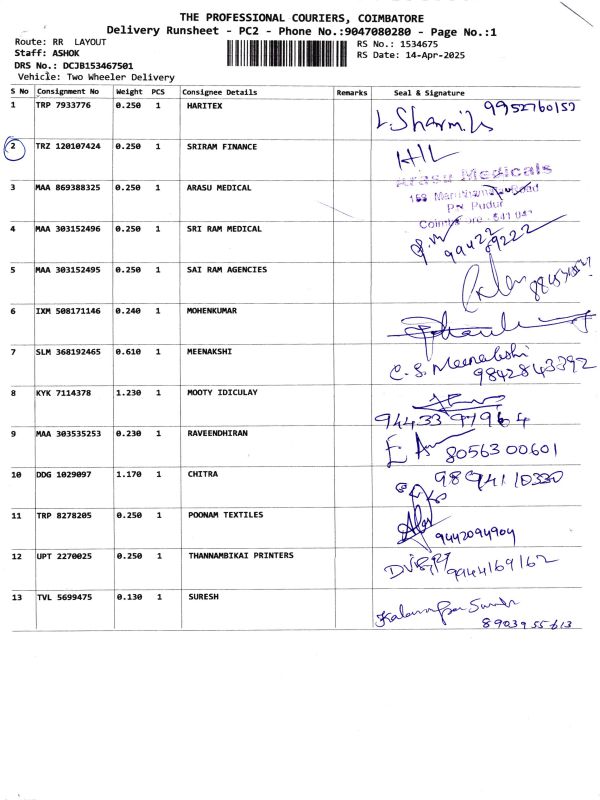 THE PROFESSIONAL COURIERS, COIMBATORE
Delivery Runsheet - PC2 - Phone No.:9047080280 - Page No.:1
Route: RR LAYOUT
RS No.: 1534675
Staff: ASHOK
RS Date: 14-Apr-2025
DRS No.: DCJB153467501
Vehicle: Two Wheeler Delivery
S No Consignment No Weight PCS Consignee Details Remarks Seal & Signature
1 TRP 7933776 0.250 1 HARITEX L. Sharmila 9952760157
2 TRZ 120107424 0.250 1 SRIRAM FINANCE HIL
3 MAA 869388325 0.250 1 ARASU MEDICAL
Arasu Medicals
Road
P.N. Pudur
Coimbatore - 641 041
4 MAA 303152496 0.250 1 SRI RAM MEDICAL 99422 89222
5 MAA 303152495 0.250 1 SAI RAM AGENCIES
6 IXM 508171146 0.240 1 MOHENKUMAR
7 SLM 368192465 0.610 1 MEENAKSHI C. S. Meenakshi
9842843392
8 KYK 7114378 1.230 1 MOOTY IDICULAY
9443397964
9 MAA 303535253 0.230 1 RAVEENDHIRAN 8056300601
10 DDG 1029097 1.170 1 CHITRA 9894110330
11 TRP 8278205 0.250 1 POONAM TEXTILES 9442094904
12 UPT 2270025 0.250 1 THANNAMBIKAI PRINTERS 9944169162
13 TVL 5699475 0.130 1 SURESH
8903955613